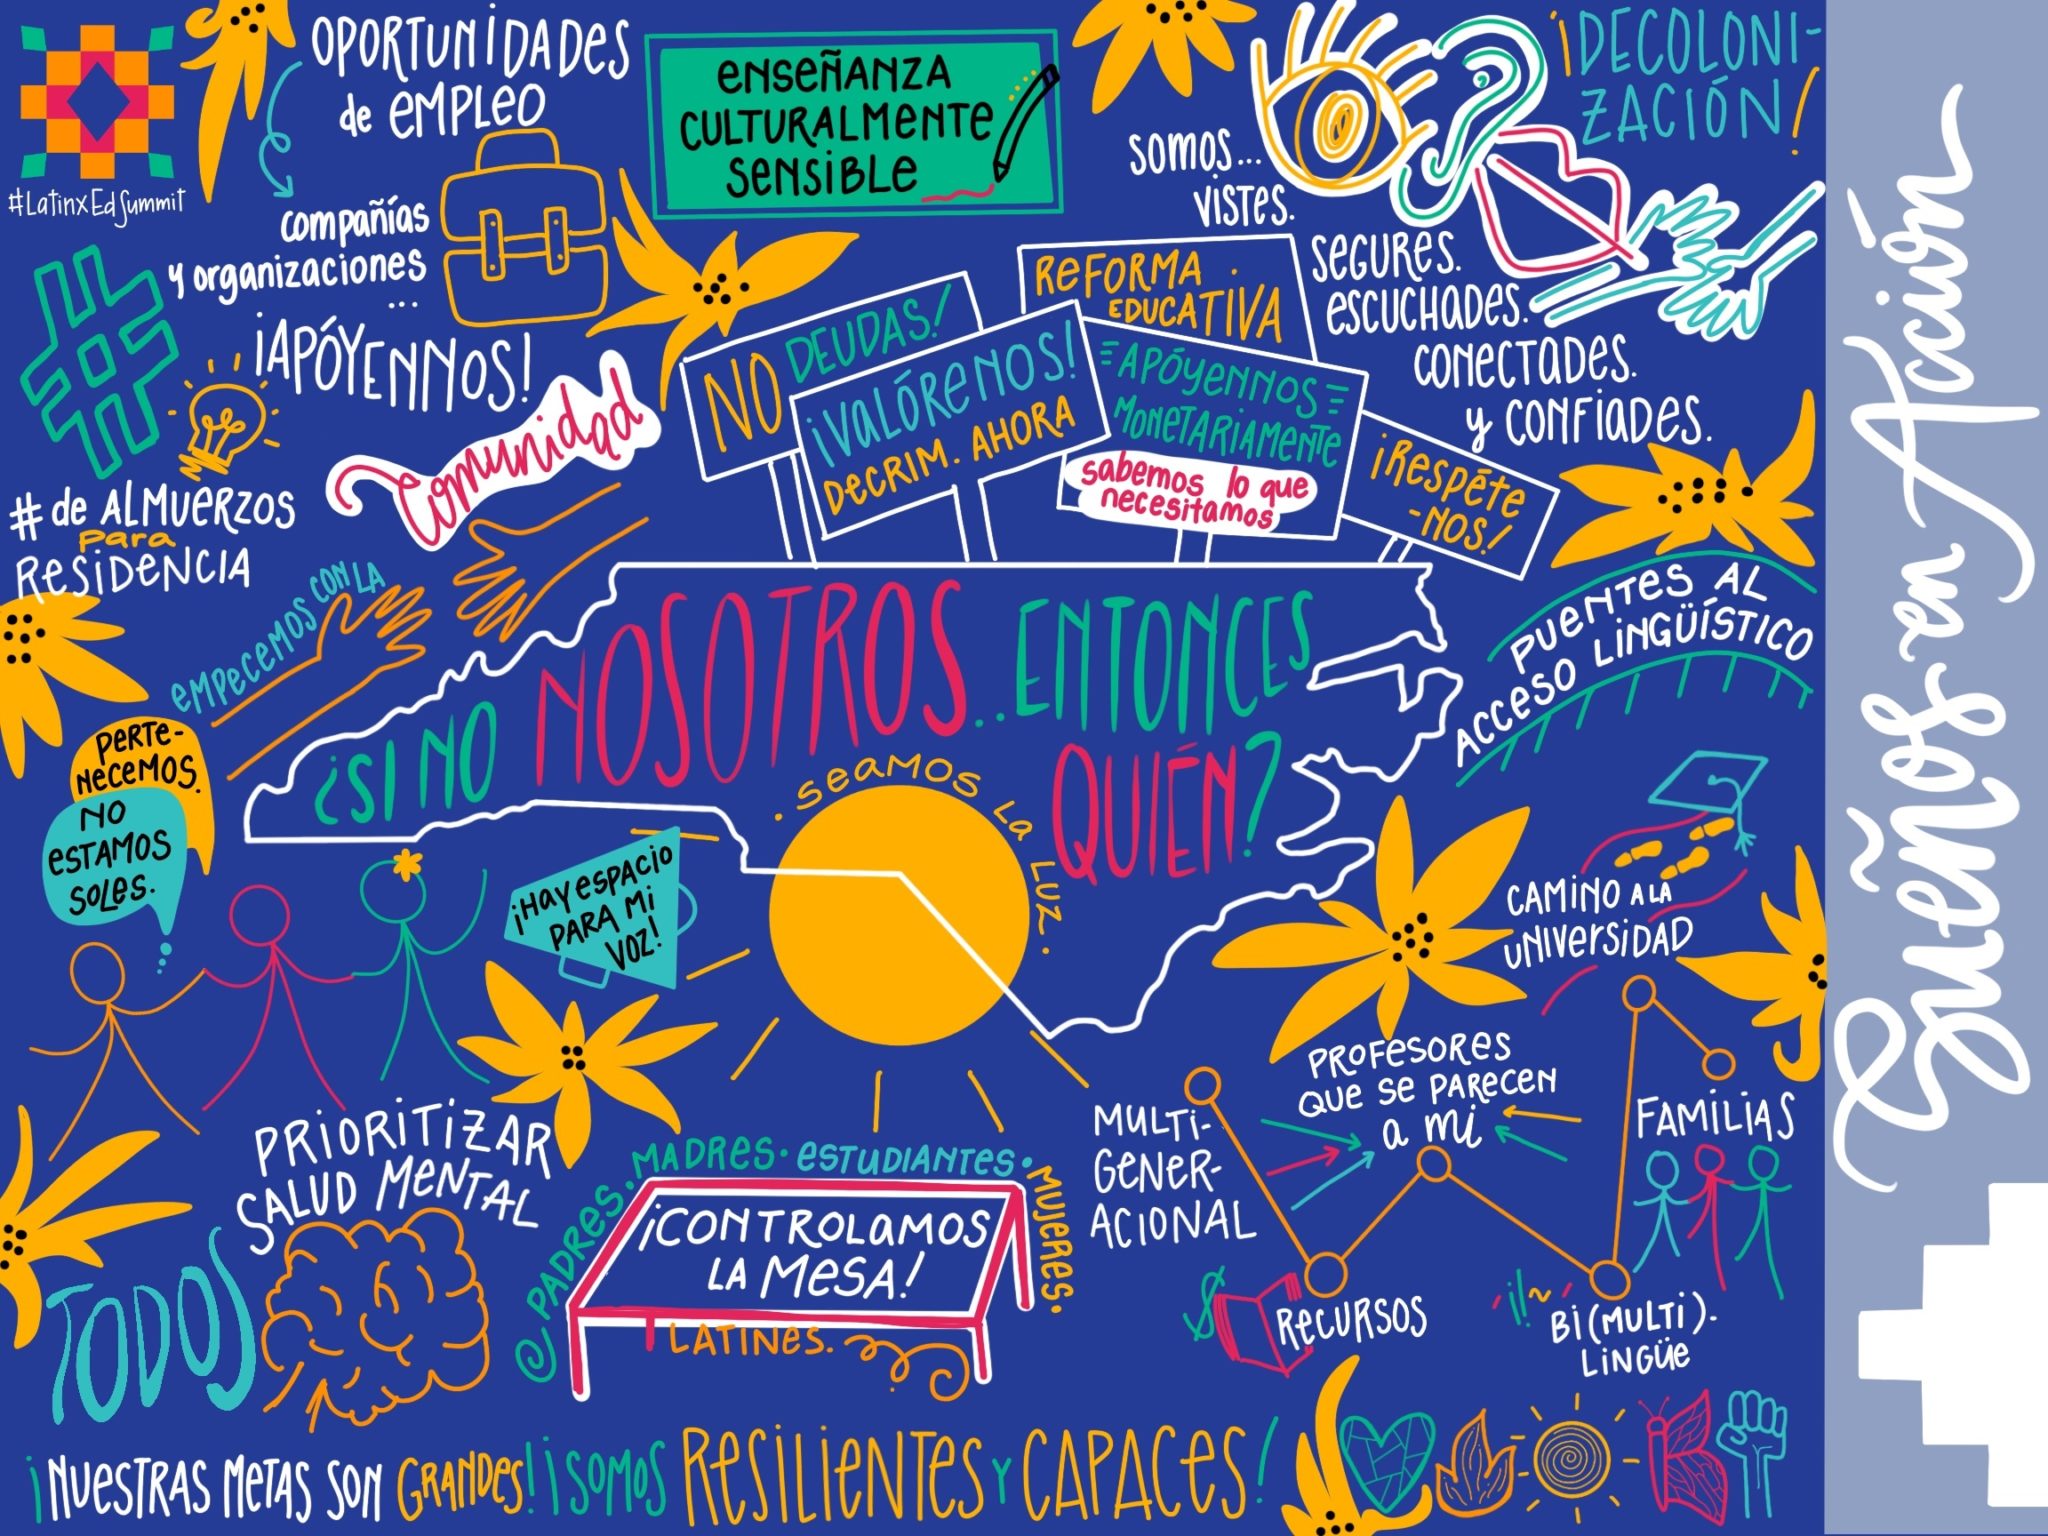 #LatinxEdSummit
OPORTUNIDADES
de EMPLEO
compañías
y organizaciones
...
¡APÓYENNOS!
ENSEÑANZA
CULTURALMENTE
SENSIBLE
¡DECOLONI-
ZACIÓN!
SOMOS...
VISTES.
SEGURES.
ESCUCHADES.
CONECTADES.
y CONFIADES.
Sueños en Acción
# de ALMUERZOS
para
RESIDENCIA
EMPECEMOS CON LA
Comunidad
NO DEUDAS!
¡VALÓRENOS!
DECRIM. AHORA
REFORMA
EDUCATIVA
APÓYENNOS
MONETARIAMENTE
sabemos lo que
necesitamos
¡RESPÉTE
-NOS!
PUENTES AL
ACCESO LINGÜÍSTICO
¿SI NO NOSOTROS..ENTONCES
QUIÉN?
. SEAMOS LA LUZ.
PERTE-
NECEMOS.
NO
ESTAMOS
SOLES.
¡HAY ESPACIO
PARA MI
VOZ!
CAMINO A LA
UNIVERSIDAD
PRIORITIZAR
SALUD MENTAL
TODOS
PADRES. MADRES. ESTUDIANTES. MUJERES.
¡CONTROLAMOS
LA MESA!
LATINES.
MULTI-
GENER-
ACIONAL
PROFESORES
QUE SE PARECEN
a mi
FAMILIAS
$
RECURSOS
BI(MULTI).
LINGÜE
¡NUESTRAS METAS SON GRANDES! ¡SOMOS RESILIENTES Y CAPACES!